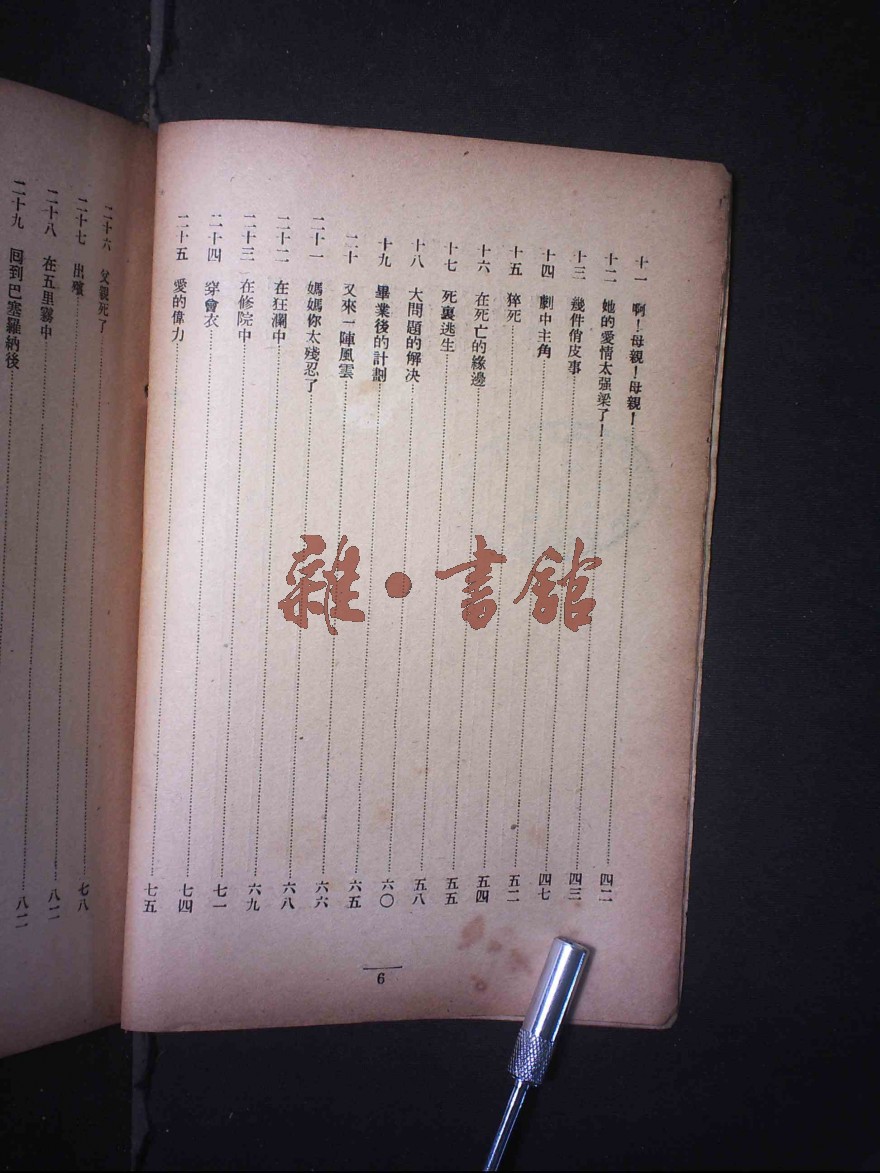 十一　啊！母親！母親！……四二
十二　她的愛情太强梁了！……四三
十三　幾件俏皮事……四七
十四　劇中主角……五二
十五　猝死……五四
十六　在死亡的緣邊……五五
十七　死裏逃生……五八
十八　大問題的解决……六〇
十九　畢業後的計劃……六五
二十　又來一陣風雲……六六
二十一　媽媽你太殘忍了……六八
二十二　在狂瀾中……六九
二十三　在修院中……七一
二十四　穿會衣……七四
二十五　愛的偉力……七五
6
二十六　父親死了……七八
二十七　出殯……八二
二十八　在五里霧中……八二
二十九　回到巴塞羅納後……
雜·書館